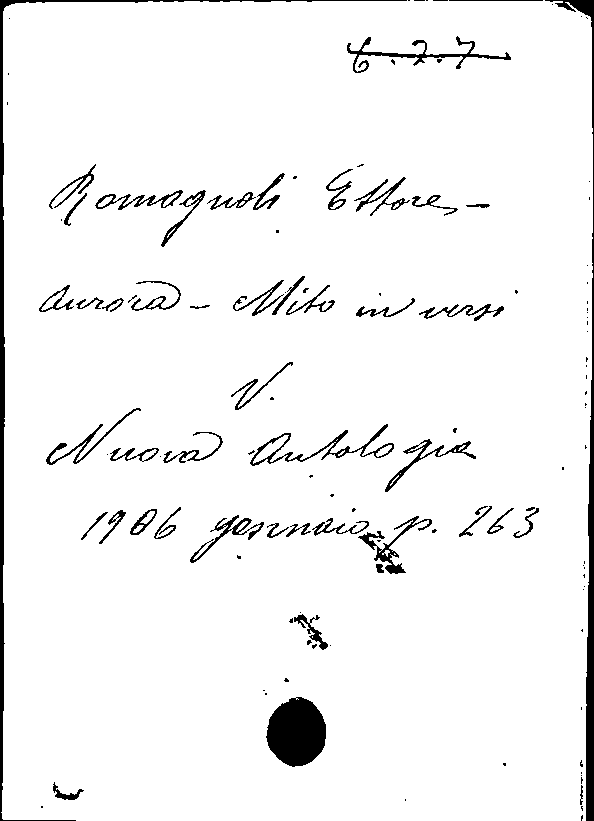 6.7.7
Romagnoli Ettore, –
Aurora – Mito in versi
V.
Nuova Antologia
1906 gennaio p. 263